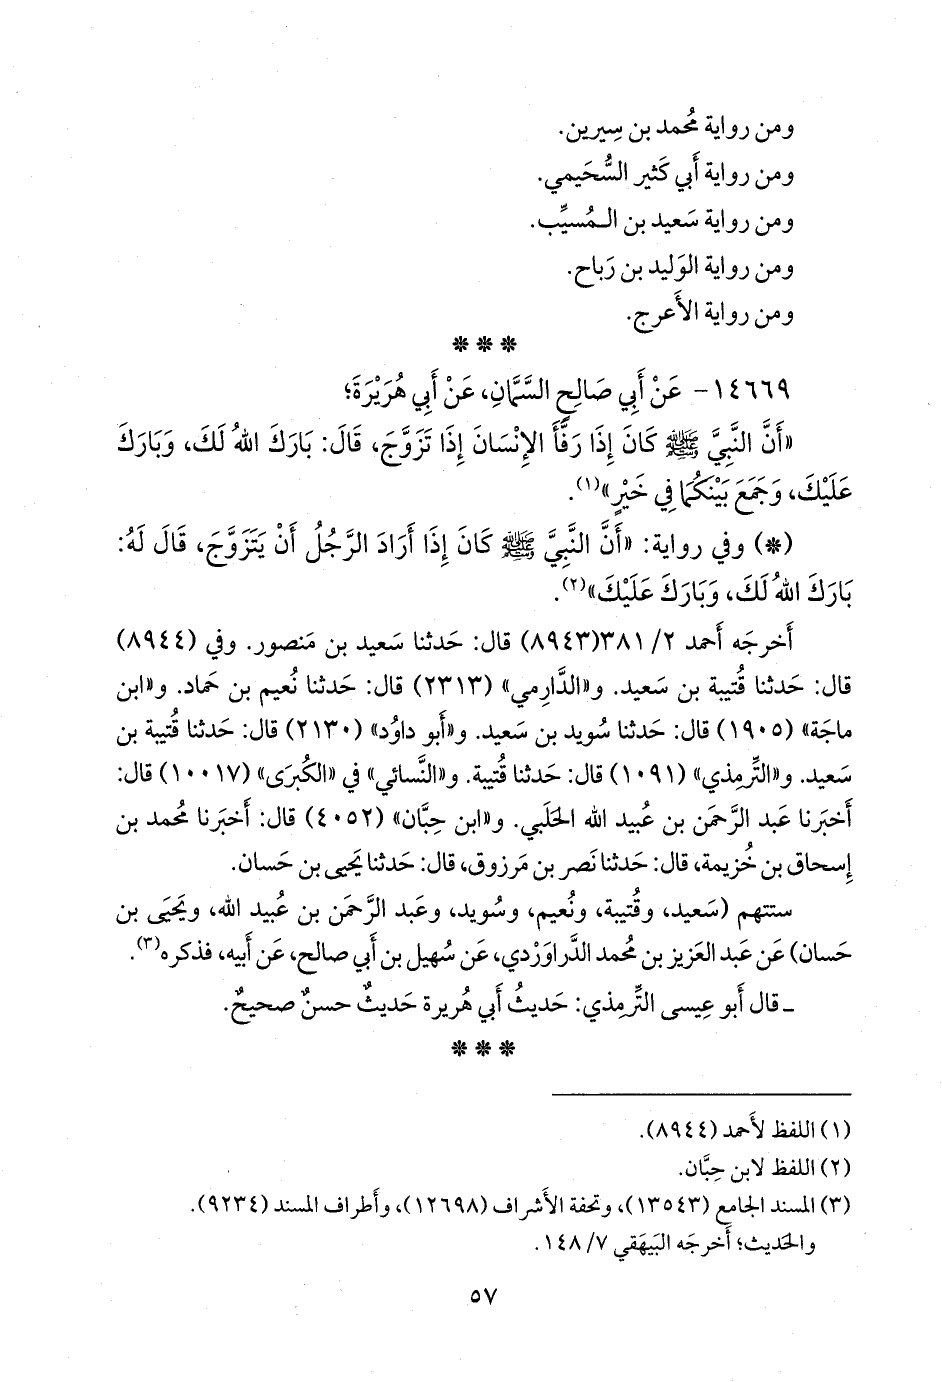 ومن رواية مُحمد بن سِيرين.
ومن رواية أَبي كَثير السُّحَيمي.
ومن رواية سَعيد بن الـمُسيِّب.
ومن رواية الوَليد بن رَباح.
ومن رواية الأَعرج.
* * *
١٤٦٦٩- عَنْ أَبِي صَالِحٍ السَّمَّانِ، عَنْ أَبِي هُرَيْرَةَ؛
«أَنَّ النَّبِيَّ ﷺ كَانَ إِذَا رَفَّأَ الإِنْسَانَ إِذَا تَزَوَّجَ، قَالَ: بَارَكَ اللهُ لَكَ، وَبَارَكَ
عَلَيْكَ، وَجَمَعَ بَيْنَكُمَا فِي خَيْرٍ»(١).
(*) وفي رواية: «أَنَّ النَّبِيَّ ﷺ كَانَ إِذَا أَرَادَ الرَّجُلُ أَنْ يَتَزَوَّجَ، قَالَ لَهُ:
بَارَكَ اللهُ لَكَ، وَبَارَكَ عَلَيْكَ»(٢).
أَخرجَه أَحمد ٢/ ٣٨١(٨٩٤٣) قال: حَدثنا سَعيد بن مَنصور. وفي (٨٩٤٤)
قال: حَدثنا قُتيبة بن سَعيد. و«الدَّارِمي» (٢٣١٣) قال: حَدثنا نُعيم بن حَماد. و«ابن
ماجَة» (١٩٠٥) قال: حَدثنا سُويد بن سَعيد. و«أَبو داوُد» (٢١٣٠) قال: حَدثنا قُتيبة بن
سَعيد. و«التِّرمِذي» (١٠٩١) قال: حَدثنا قُتيبة. و«النَّسائي» في «الكُبرَى» (١٠٠١٧) قال:
أَخبَرنا عَبد الرَّحمَن بن عُبيد الله الحَلَبي. و«ابن حِبَّان» (٤٠٥٢) قال: أَخبَرنا مُحمد بن
إِسحاق بن خُزيمة، قال: حَدثنا نَصر بن مَرزوق، قال: حَدثنا يَحيى بن حَسان.
ستتهم (سَعيد، وقُتيبة، ونُعيم، وسُويد، وعَبد الرَّحمَن بن عُبيد الله، ويَحيَى بن
حَسان) عَن عَبد العَزيز بن مُحمد الدَّراوَرْدي، عَن سُهيل بن أَبي صالح، عَن أَبيه، فذكره(٣).
ـ قال أَبو عِيسى التِّرمِذي: حَديثُ أَبي هُريرة حَديثٌ حسنٌ صحيحٌ.
* * *
(١) اللفظ لأَحمد (٨٩٤٤).
(٢) اللفظ لابن حِبَّان.
(٣) المسند الجامع (١٣٥٤٣)، وتحفة الأَشراف (١٢٦٩٨)، وأَطراف المسند (٩٢٣٤).
والحَديث؛ أَخرجَه البَيهَقي ٧/ ١٤٨.
٥٧